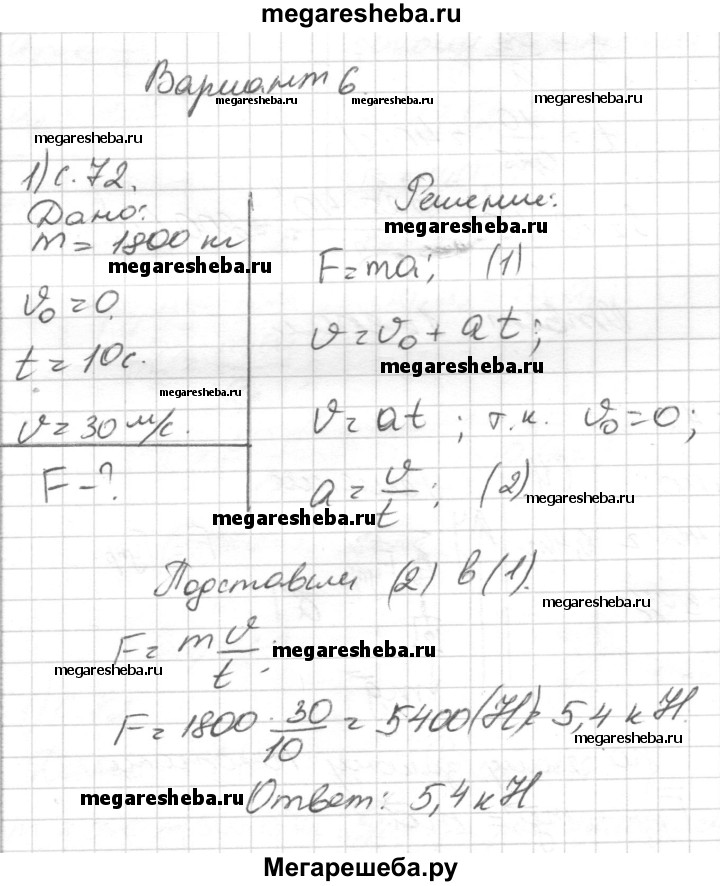 megaresheba.ru
Вариант 6.
megaresheba.ru megaresheba.ru megaresheba.ru
megaresheba.ru
1) с. 72.
Дано:
m = 1800 кг
megaresheba.ru
v₀ = 0
t = 10 с.
megaresheba.ru
v = 30 м/с.
F - ?
Решение:
megaresheba.ru
F = ma; (1)
v = v₀ + at;
megaresheba.ru
v = at; т.к. v₀ = 0;
a = v/t; (2)
megaresheba.ru
megaresheba.ru
Подставим (2) в (1).
megaresheba.ru
F = m v/t;
megaresheba.ru
megaresheba.ru
F = 1800 · 30/10 = 5400 (Н) = 5,4 кН
megaresheba.ru
megaresheba.ru
Ответ: 5,4 кН
Мегарешеба.ру